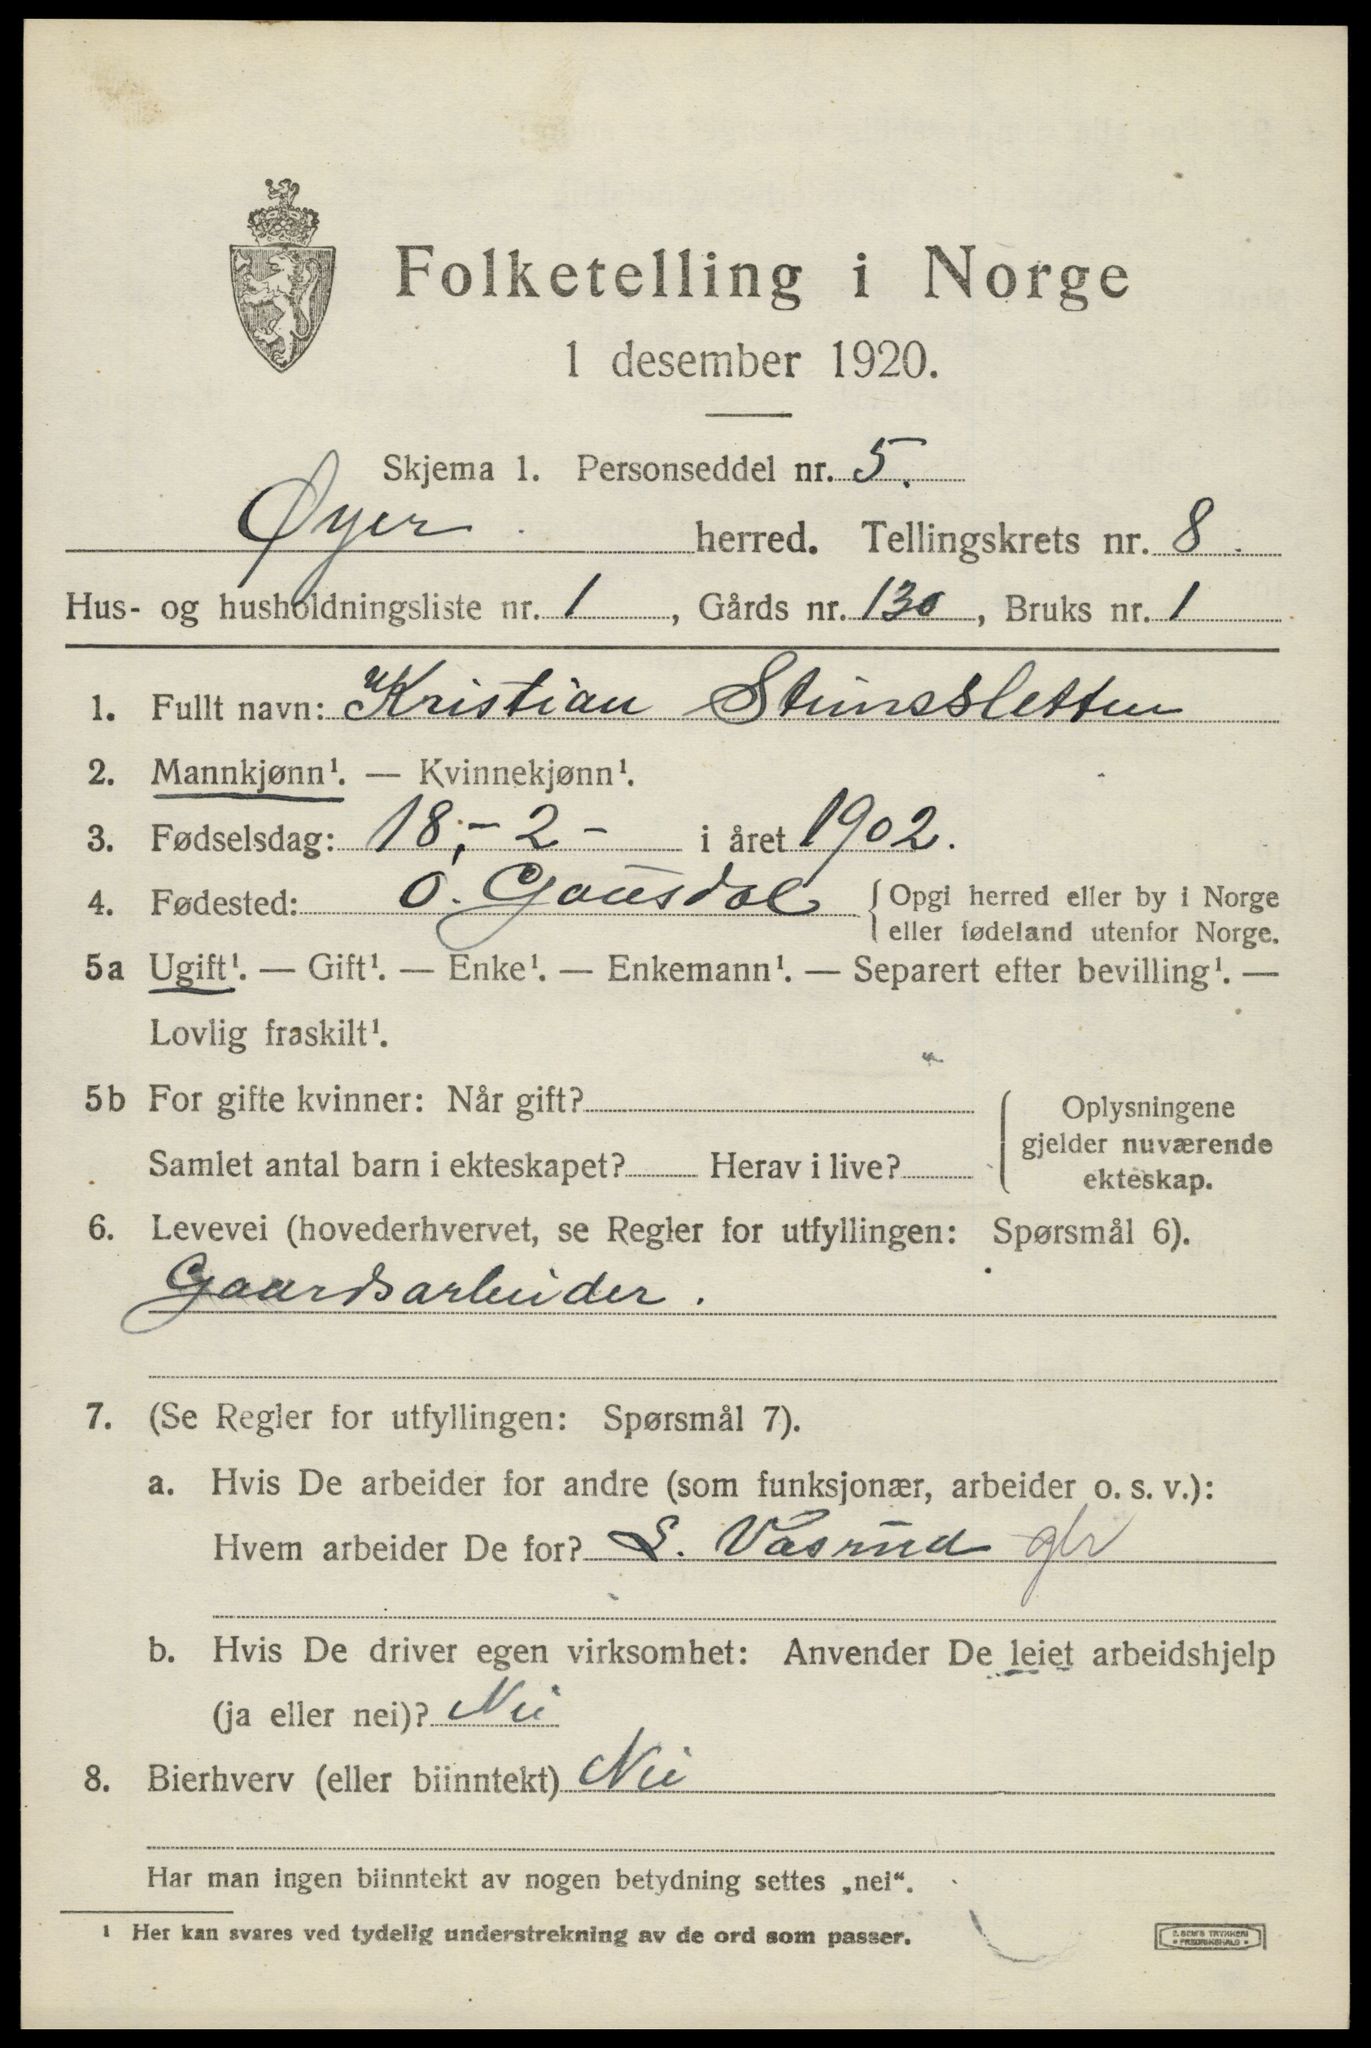 Folketelling i Norge
1 desember 1920.
Skjema 1. Personseddel nr. 5.
Øyer herred. Tellingskrets nr. 8.
Hus- og husholdningsliste nr. 1, Gårds nr. 130, Bruks nr. 1
1. Fullt navn: Kristian
2. Mannkjønn¹. — Kvinnekjønn¹.
3. Fødselsdag: 18,- 2 - i året 1902.
4. Fødested: Ö. Gausdal { Opgi herred eller by i Norge
eller fødeland utenfor Norge.
5a Ugift¹. — Gift¹. — Enke¹. — Enkemann¹. — Separert efter bevilling¹. —
Lovlig fraskilt¹.
5b For gifte kvinner: Når gift?
Samlet antal barn i ekteskapet? Herav i live?
Oplysningene
gjelder nuværende
ekteskap.
6. Levevei (hovederhvervet, se Regler for utfyllingen: Spørsmål 6).
Gaardsarbeider.
7. (Se Regler for utfyllingen: Spørsmål 7).
a. Hvis De arbeider for andre (som funksjonær, arbeider o. s. v.):
Hvem arbeider De for? L. Vasrud
b. Hvis De driver egen virksomhet: Anvender De leiet arbeidshjelp
(ja eller nei)? Nei
8. Bierhverv (eller biinntekt) Nei
Har man ingen biinntekt av nogen betydning settes „nei“.
¹ Her kan svares ved tydelig understrekning av de ord som passer.